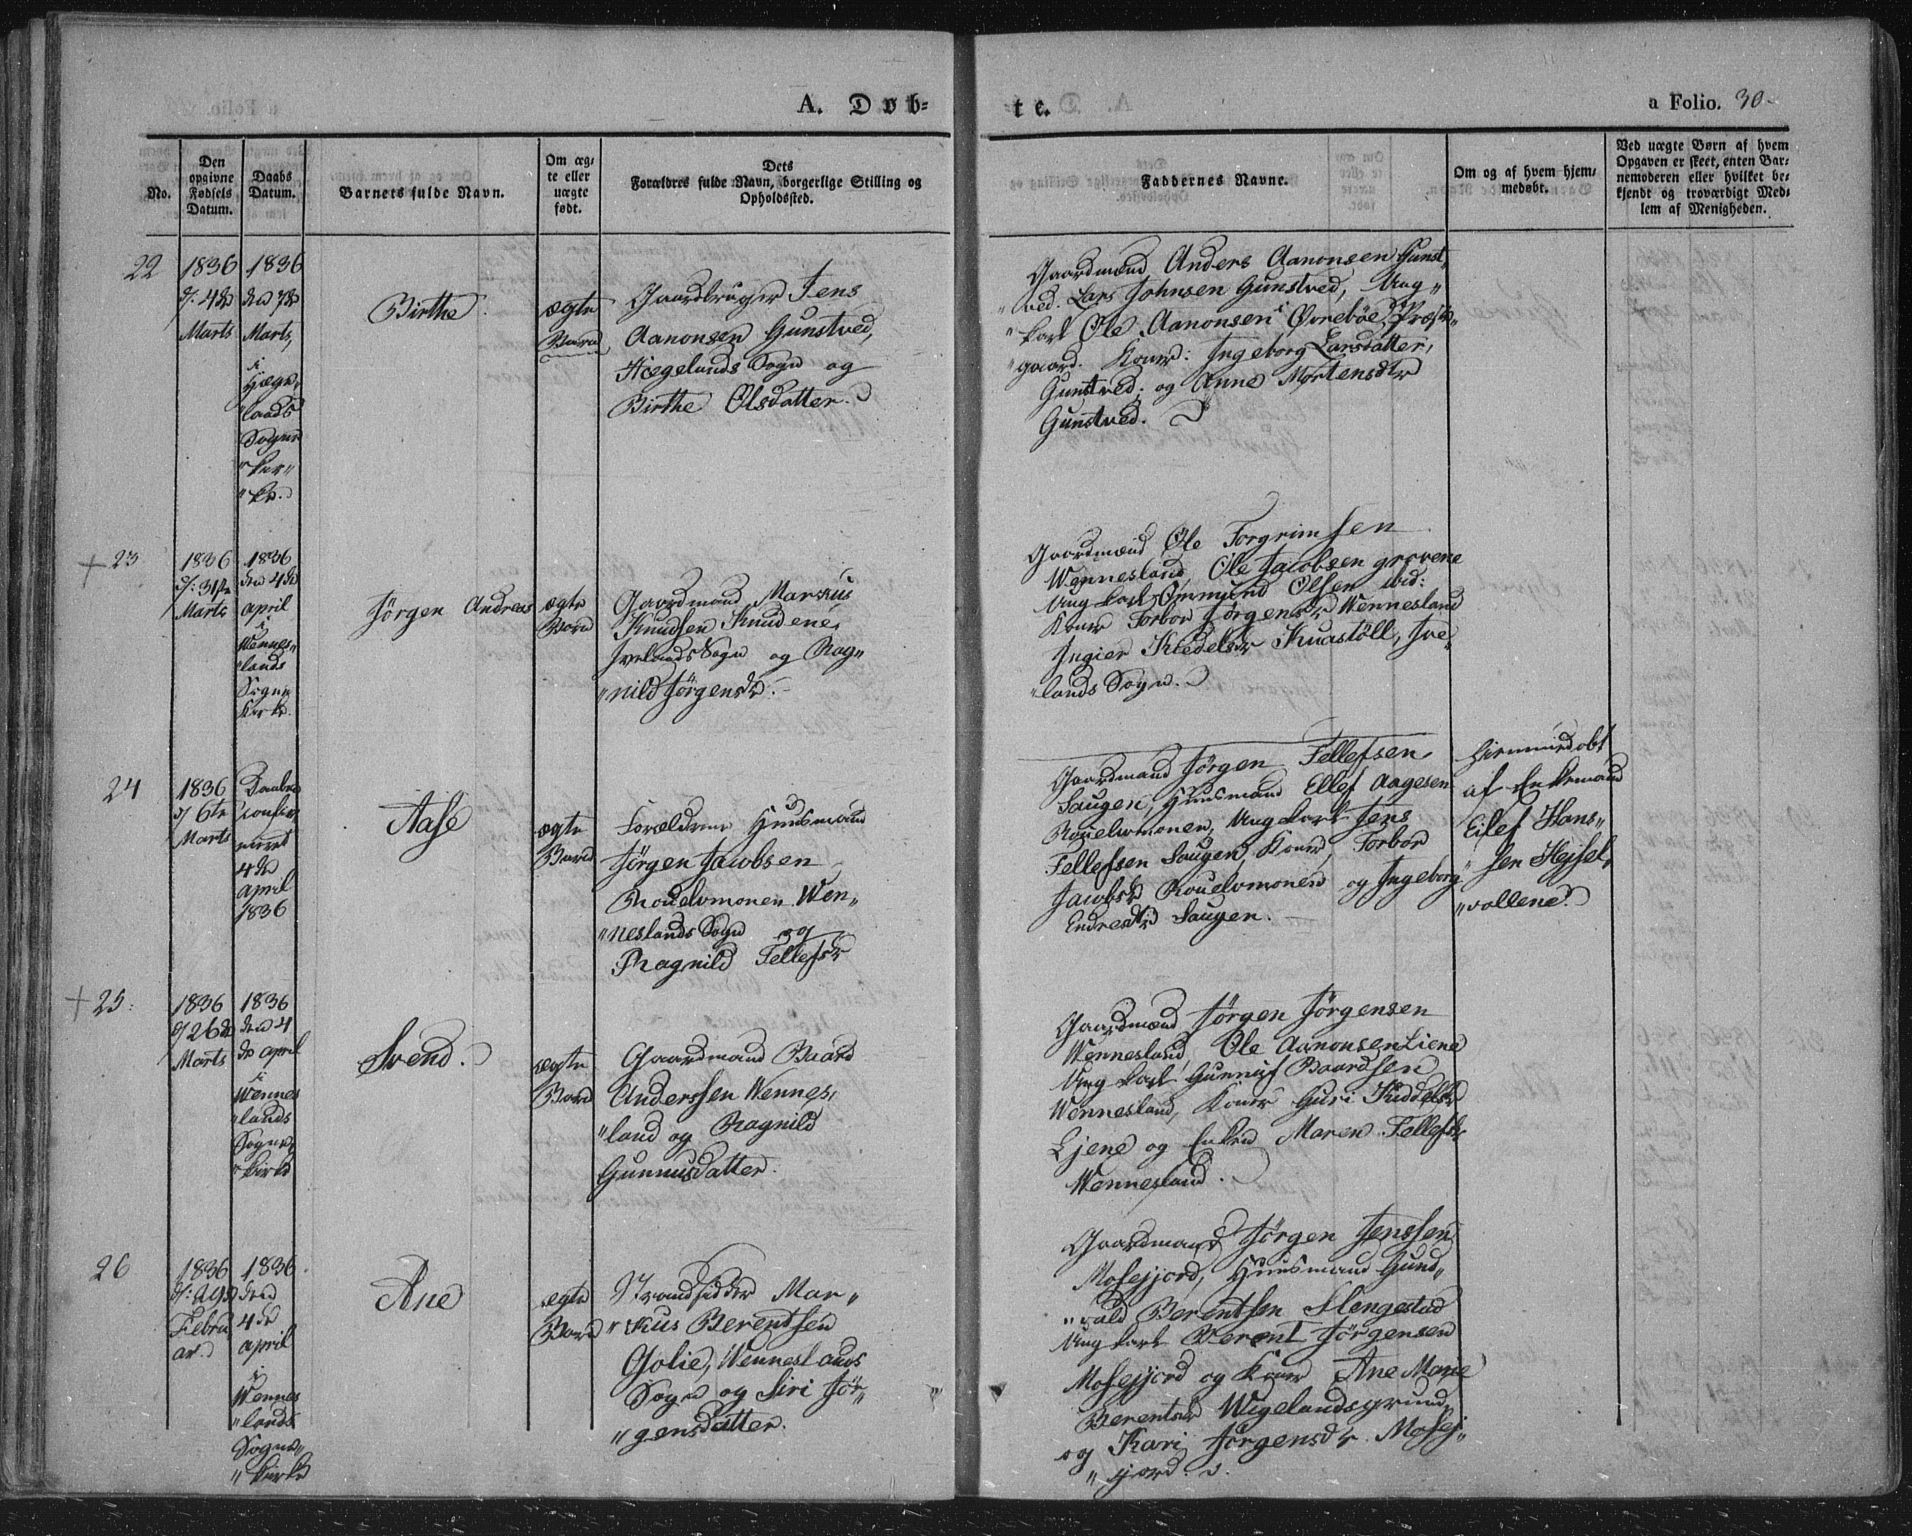 A. Døb-
te.
a Folio. 30.
No.
Den opgivne Fødsels Datum.
Daabs Datum.
Barnets fulde Navn.
Om ægte eller uægte født.
Dets Forældres fulde Navn, borgerlige Stilling og Opholdssted.
Faddernes Navne.
Om og af hvem hjemmedøbt.
Ved uægte Børn af hvem Opgaven er skeet, enten Barnemoderen eller hvilket bekjendt og troværdigt Medlem af Menigheden.
22
1836
d: 4de
Marts
1836
den 7de
Marts,
i
Hæge-
lands
Sogne
"kir"
"ke.
Birthe.
ægte
Barn
Gaardbruger Jens
Aanonsen Gunstved,
Hægelands Sogn og
Birthe Olsdatter.
Gaardmænd Anders Aanonsen Gunst-
"ved. Lars Johnsen Gunstved, Ung"
"karl Ole Aanonsen i Øvrebøe Præste"
"gaard. Koner: Ingeborg Larsdatter,
Gunstved; og Anne Mortensdtr
Gunstved.
+ 23
1836
d: 31te
Marts
1836
den 4de
april
i
Wennes-
"lands
Sogne
Kirke.
Jörgen Andreas
ægte
Barn
Gaardmand Markus
Knudsen
Ivelands Sogn og Rag"
"nild Jörgensdr.
Gaardmænd Ole Torgrimsen
Wennesland, Ole Jacobsen
Ungkarl Ommund Olsen ibid:
Koner Torbor Jörgensdr Wennesland
Ingier Kledelsdr Kuastöll, Ive"
"lands Sogn.
24
1836
d 6te
Marts
Daaben
confir-
meret
4de
april
1836
Aase
ægte
Barn
Forældrene Huusmand
Jörgen Jacobsen
Wen"
"neslands Sogn og
Ragnild Tellefsdr
Gaardmand Jörgen Tellefsen
Saugen, Huusmand Ellef Aagesen
Ungkarl Jens
Tellefsen Saugen, Koner, Torbor
Jacobsdr og Ingeborg
Endresdtr Saugen.
Hjemmedøbt
af Enkemand
Eilef Hans"
"sen Hejsel"
"vollene.
+ 25.
1836
d 26de
Marts
1836
den 4
de april
i
Wennes
"lands
Sogne
"kirke
Svend.
ægte
Barn
Gaardmand Baard
Anderssen Wennes,
"land og Ragnild
Gunnusdatter.
Gaardmænd Jörgen Jörgensen
Wennesland, Ole Aanonsen Liene
Ungkarl Gunnuf Baardsen
Wennesland, Koner Guri Kiddelsdr
Ljene og Enken Maren Tellefsdr
Wennesland.
26
1836
d: 29de
Febru
ar.
1836
den
4de
april
i
Wennes
"lands
Sogne"
"kirke
Ane
ægte
Barn
Strandsidder Mar"
"kus Berentsen
Golie, Wenneslands
Sogn og Siri Jör"
"gensdatter.
Gaardmand Jörgen Jenssen
Mosejjord, Huusmand Gund"
"vald Berentsen Slengestad
Ungkarl Berent Jörgensen
Mosejjord og Koner Ane Marie
Berentsdr Wigelandsgrund,
og Kari Jörgensdr. Mosej"
"jord.